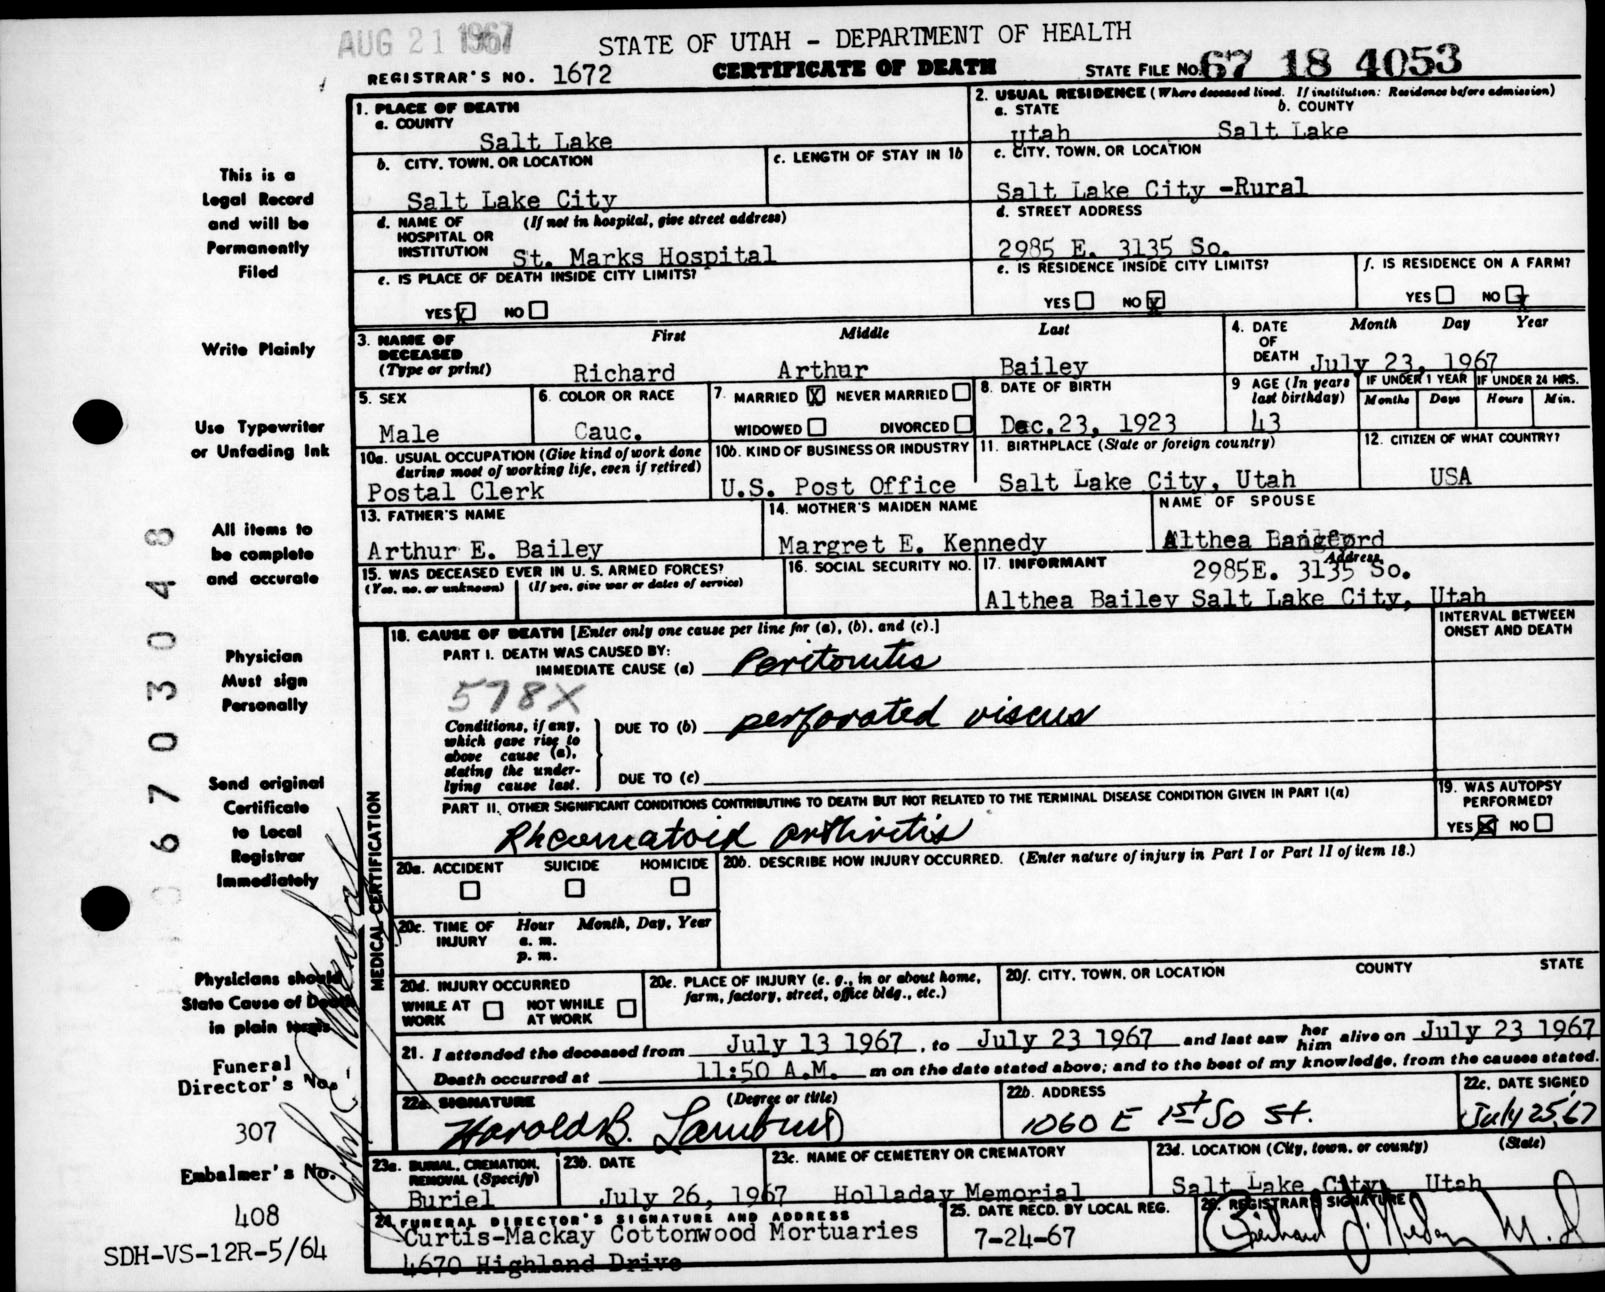 AUG 21 1967
STATE OF UTAH - DEPARTMENT OF HEALTH
REGISTRAR'S NO. 1672
CERTIFICATE OF DEATH
STATE FILE NO. 67 18 4053
This is a
Legal Record
and will be
Permanently
Filed
Write Plainly
Use Typewriter
or Unfading Ink
All items to
be complete
and accurate
Physician
Must sign
Personally
Send original
Certificate
to Local
Registrar
Immediately
Physicians should
State Cause of Death
in plain terms
Funeral
Director's No.
307
Embalmer's No.
408
SDH-VS-12R-5/64
6 7 0 3 0 4 8
1. PLACE OF DEATH
a. COUNTY
Salt Lake
2. USUAL RESIDENCE (Where deceased lived. If institution: Residence before admission)
a. STATE b. COUNTY
Utah Salt Lake
b. CITY, TOWN, OR LOCATION
Salt Lake City
c. LENGTH OF STAY IN 1b
c. CITY, TOWN, OR LOCATION
Salt Lake City -Rural
d. NAME OF (If not in hospital, give street address)
HOSPITAL OR
INSTITUTION St. Marks Hospital
d. STREET ADDRESS
2985 E. 3135 So.
e. IS PLACE OF DEATH INSIDE CITY LIMITS?
YES X NO
e. IS RESIDENCE INSIDE CITY LIMITS?
YES NO X
f. IS RESIDENCE ON A FARM?
YES NO X
3. NAME OF First Middle Last
DECEASED
(Type or print) Richard Arthur Bailey
4. DATE Month Day Year
OF
DEATH July 23, 1967
5. SEX
Male
6. COLOR OR RACE
Cauc.
7. MARRIED X NEVER MARRIED
WIDOWED DIVORCED
8. DATE OF BIRTH
Dec.23, 1923
9 AGE (In years
last birthday)
43
IF UNDER 1 YEAR IF UNDER 24 HRS.
Months Days Hours Min.
10a. USUAL OCCUPATION (Give kind of work done
during most of working life, even if retired)
Postal Clerk
10b. KIND OF BUSINESS OR INDUSTRY
U.S. Post Office
11. BIRTHPLACE (State or foreign country)
Salt Lake City, Utah
12. CITIZEN OF WHAT COUNTRY?
USA
13. FATHER'S NAME
Arthur E. Bailey
14. MOTHER'S MAIDEN NAME
Margret E. Kennedy
NAME OF SPOUSE
Althea
15. WAS DECEASED EVER IN U. S. ARMED FORCES?
(Yes, no, or unknown) (If yes, give war or dates of service)
16. SOCIAL SECURITY NO.
17. INFORMANT Address
2985E. 3135 So.
Althea Bailey Salt Lake City, Utah
MEDICAL CERTIFICATION
18. CAUSE OF DEATH [Enter only one cause per line for (a), (b), and (c).]
INTERVAL BETWEEN
ONSET AND DEATH
PART I. DEATH WAS CAUSED BY:
IMMEDIATE CAUSE (a) Peritonitis
578X
Conditions, if any,
which gave rise to
above cause (a),
stating the under-
lying cause last.
DUE TO (b) perforated viscus
DUE TO (c)
PART II. OTHER SIGNIFICANT CONDITIONS CONTRIBUTING TO DEATH BUT NOT RELATED TO THE TERMINAL DISEASE CONDITION GIVEN IN PART I(a)
Rheumatoid arthritis
19. WAS AUTOPSY
PERFORMED?
YES X NO
20a. ACCIDENT SUICIDE HOMICIDE
20b. DESCRIBE HOW INJURY OCCURRED. (Enter nature of injury in Part I or Part II of item 18.)
20c. TIME OF Hour Month, Day, Year
INJURY a. m.
p. m.
20d. INJURY OCCURRED
WHILE AT WORK NOT WHILE AT WORK
20e. PLACE OF INJURY (e. g., in or about home,
farm, factory, street, office bldg., etc.)
20f. CITY, TOWN, OR LOCATION COUNTY STATE
21. I attended the deceased from July 13 1967, to July 23 1967 and last saw her him alive on July 23 1967
Death occurred at 11:50 A.M. m on the date stated above; and to the best of my knowledge, from the causes stated.
22a. SIGNATURE (Degree or title)
Harold B.
22b. ADDRESS
1060 E 1st So St.
22c. DATE SIGNED
July 25, 67
23a. BURIAL, CREMATION,
REMOVAL (Specify)
Buriel
23b. DATE
July 26, 1967
23c. NAME OF CEMETERY OR CREMATORY
Holladay Memorial
23d. LOCATION (City, town, or county) (State)
Salt Lake City, Utah
24. FUNERAL DIRECTOR'S SIGNATURE AND ADDRESS
Curtis-Mackay Cottonwood Mortuaries
4670 Highland Drive
25. DATE RECD. BY LOCAL REG.
7-24-67
26. REGISTRAR'S SIGNATURE
M.D